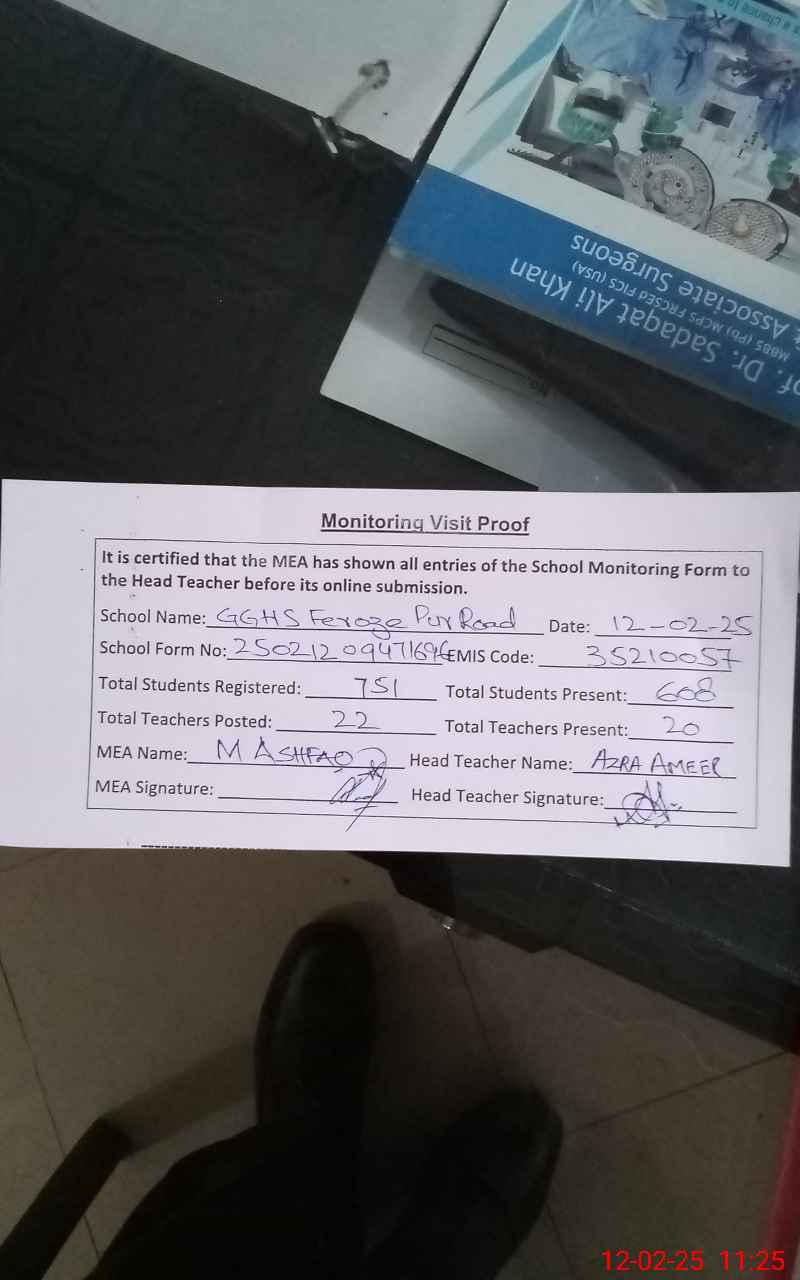 s a chance to
of. Dr. Sadaqat Ali Khan
MBBS (Pb) MCPS FRCSEd FICS (USA)
& Associate Surgeons
No.
Monitoring Visit Proof
It is certified that the MEA has shown all entries of the School Monitoring Form to
the Head Teacher before its online submission.
School Name: GGHS Feroze Pur Road Date: 12-02-25
School Form No: EMIS Code: 35210057
Total Students Registered: 751 Total Students Present: 608
Total Teachers Posted: 22 Total Teachers Present: 20
MEA Name: M ASHFAQ Head Teacher Name: AZRA AMEER
MEA Signature: Head Teacher Signature:
12-02-25 11:25